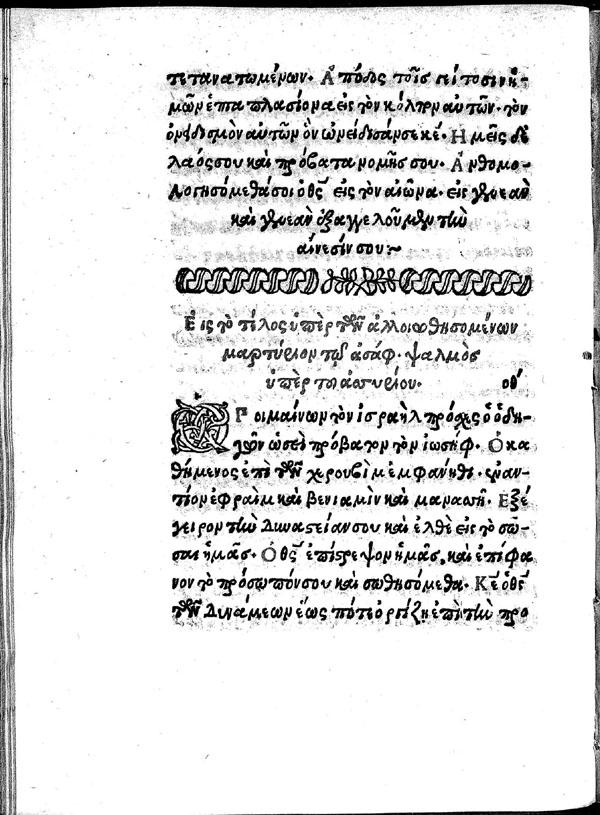 τεθανατωμένων. Ἀπόδος τοῖς γείτοσιν ἡ-
μῶν ἑπταπλασίονα εἰς τὸν κόλπον αὐτῶν. τὸν
ὀνειδισμὸν αὐτῶν ὃν ὠνείδισάν σε κέ. Ἡμεῖς δὲ
λαός σου καὶ πρόβατα νομῆς σου. Ἀνθομο-
λογησόμεθά σοι ὁ θς εἰς τὸν αἰῶνα. εἰς γενεὰν
καὶ γενεὰν ἐξαγγελοῦμεν τὴν
αἴνεσίν σου:~
Εἰς τὸ τέλος ὑπὲρ τῶν ἀλλοιωθησομένων
μαρτύριον τῷ ἀσάφ. ψαλμὸς
ὑπὲρ τοῦ ἀσσυρίου. οθ
Ὁ Ποιμαίνων τὸν ἰσραὴλ πρόσχες ὁ ὁδη-
γῶν ὡσεὶ πρόβατον τὸν ἰωσήφ. Ὁ κα
θήμενος ἐπὶ τῶν χερουβὶμ ἐμφάνηθι. ἐναν-
τίον ἐφραὶμ καὶ βενιαμὶν καὶ μανασσῆ. Ἐξέ
γειρον τὴν δυναστείαν σου καὶ ἐλθὲ εἰς τὸ σῶ-
σαι ἡμᾶς. Ὁ θς ἐπίστρεψον ἡμᾶς, καὶ ἐπίφα
νον τὸ πρόσωπόν σου καὶ σωθησόμεθα. Κε ὁ θς
τῶν δυνάμεων ἕως πότε ὀργίζῃ ἐπὶ τὴν προ